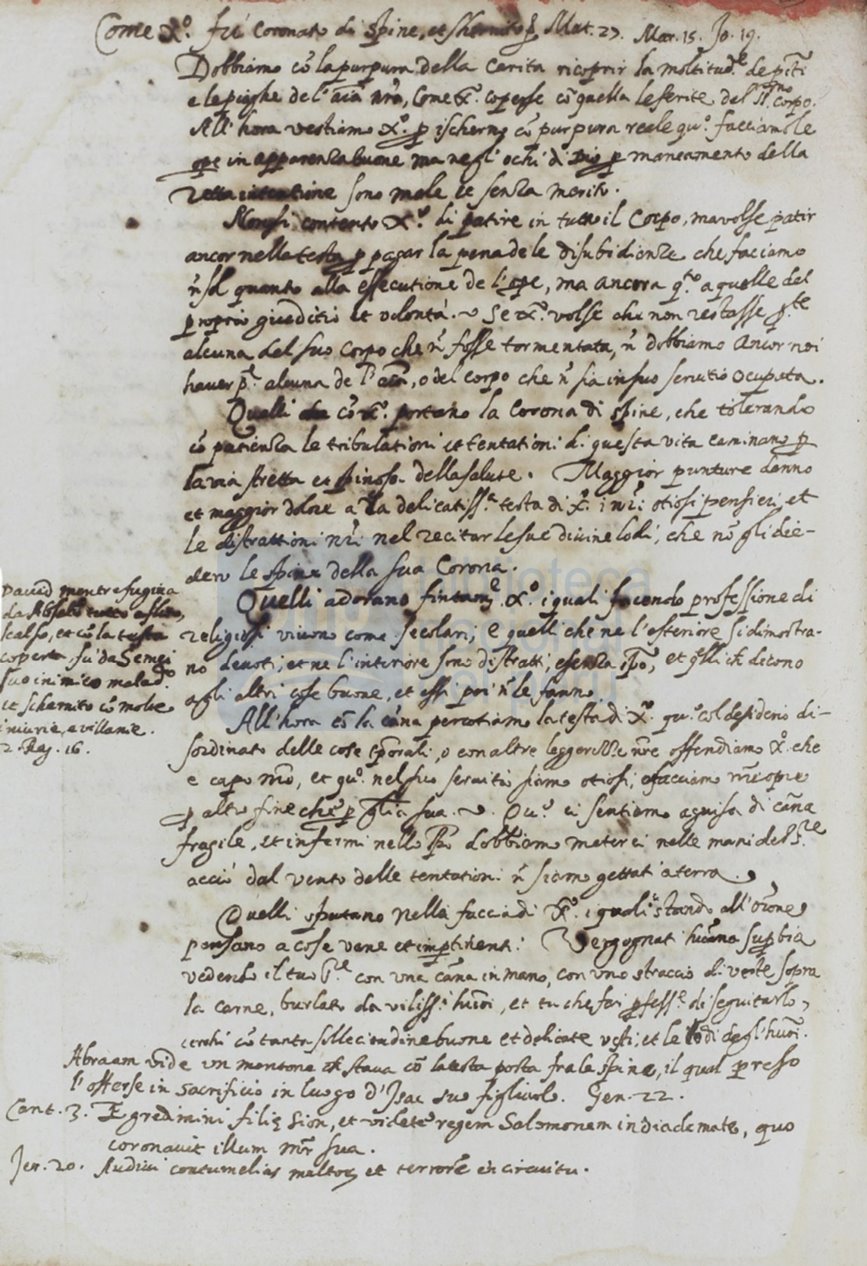 Come Xo. fú Coronato di Spine, et schernito. Mat. 27. Mar. 15. Jo. 19.
Dobbiamo cō la purpura della Carita ricoprir la moltitude. de pcti
e le piaghe de l'aīa nrā, Come X. coperse cō quella le ferite del suo corpo.
All'hora vestiamo Xo. p ischerno cō purpura reale quo. facciamo le
ope in apparenza buone ma negl'ochi di Dio p mancamento della
retta intentione sono male et senza merito.
contento Xo. di patire in tutto il Corpo, ma volse patir
ancor nella testa p pagar la pena de le disubidienze che faciamo
ñ sol quanto alla essecutione de l'ope, ma ancora qto a quelle del
proprio giuditio et volontá. Se X. volse che non restasse pte
alcuna del suo Corpo che ñ fosse tormentata, ñ dobbiamo Ancor noi
haver p. alcuna de l'aīa, o del corpo che ñ sia in suo servitio ocupata.
Quelli cō X. portano la Corona di spine, che tolerando
cō patienza le tribulationi et tentationi di questa vita caminano p
la via stretta et spinosa della salute. Maggior punture danno
et maggior dolore a la delicatiss.a testa di X. i nri otiosi pensieri, et
le distrattioni nre nel recitar le sue divine lodi, che nō gli die-
dero le spine della sua Corona.
Quelli adorano fintame. Xo. i quali facendo professione di
religiosi vivono come secolari; e quelli che ne l'esteriore si dimostra-
no devoti, et ne l'interiore sono distratti, e senza spo, et qlli ch dicono
agli altri cose buone, et essi poi ñ le fanno.
All'hora cō la cāna percotiamo la testa di X. quo. col desiderio di-
sordinato delle cose tporali, o con altre leggerezze nre offendiamo Xo. che
e capo nro, et quo. nel suo servitio siamo otiosi, o facciamo ope
p altro fine che p glia sua. Quo. ci sentiamo a guisa di cāna
fragile, et infermi nello spo dobbiamo meterci nelle mani del Sre
acció dal vento delle tentationi ñ siamo gettati a terra.
Quelli sputano nella faccia di X. i quali stando all'orōne
pensano a cose vane et imptinenti. Vergognati humana supbia
vedendo il tuo con una cāna in mano, con uno straccio di veste sopra
la carne, burlato da viliss.i huōi, et tu che fai pfess.e di seguitarlo,
cerchi cō tanta sollecitudine buone et delicate vesti, et le lodi degl'huōi.
David mentre fugiva
da Absalō tutto aflito,
scalso, et cō la testa
coperta fú da Semei
suo inimico maladto
et schernito cō molte
iniurie, e villanie.
2. Reg. 16.
Abraam vide un montone ch stava cō la testa posta fra le spine, il qual preso
l'offerse in sacrificio in luogo d'Isac suo figliolo. Gen. 22.
Cant. 3. Egredimini filię Sion, et videte regem Salomonem in diademate, quo
coronavit illum mr sua.
Jer. 20. Audivi contumelias multor. et terrorē in circuitu.